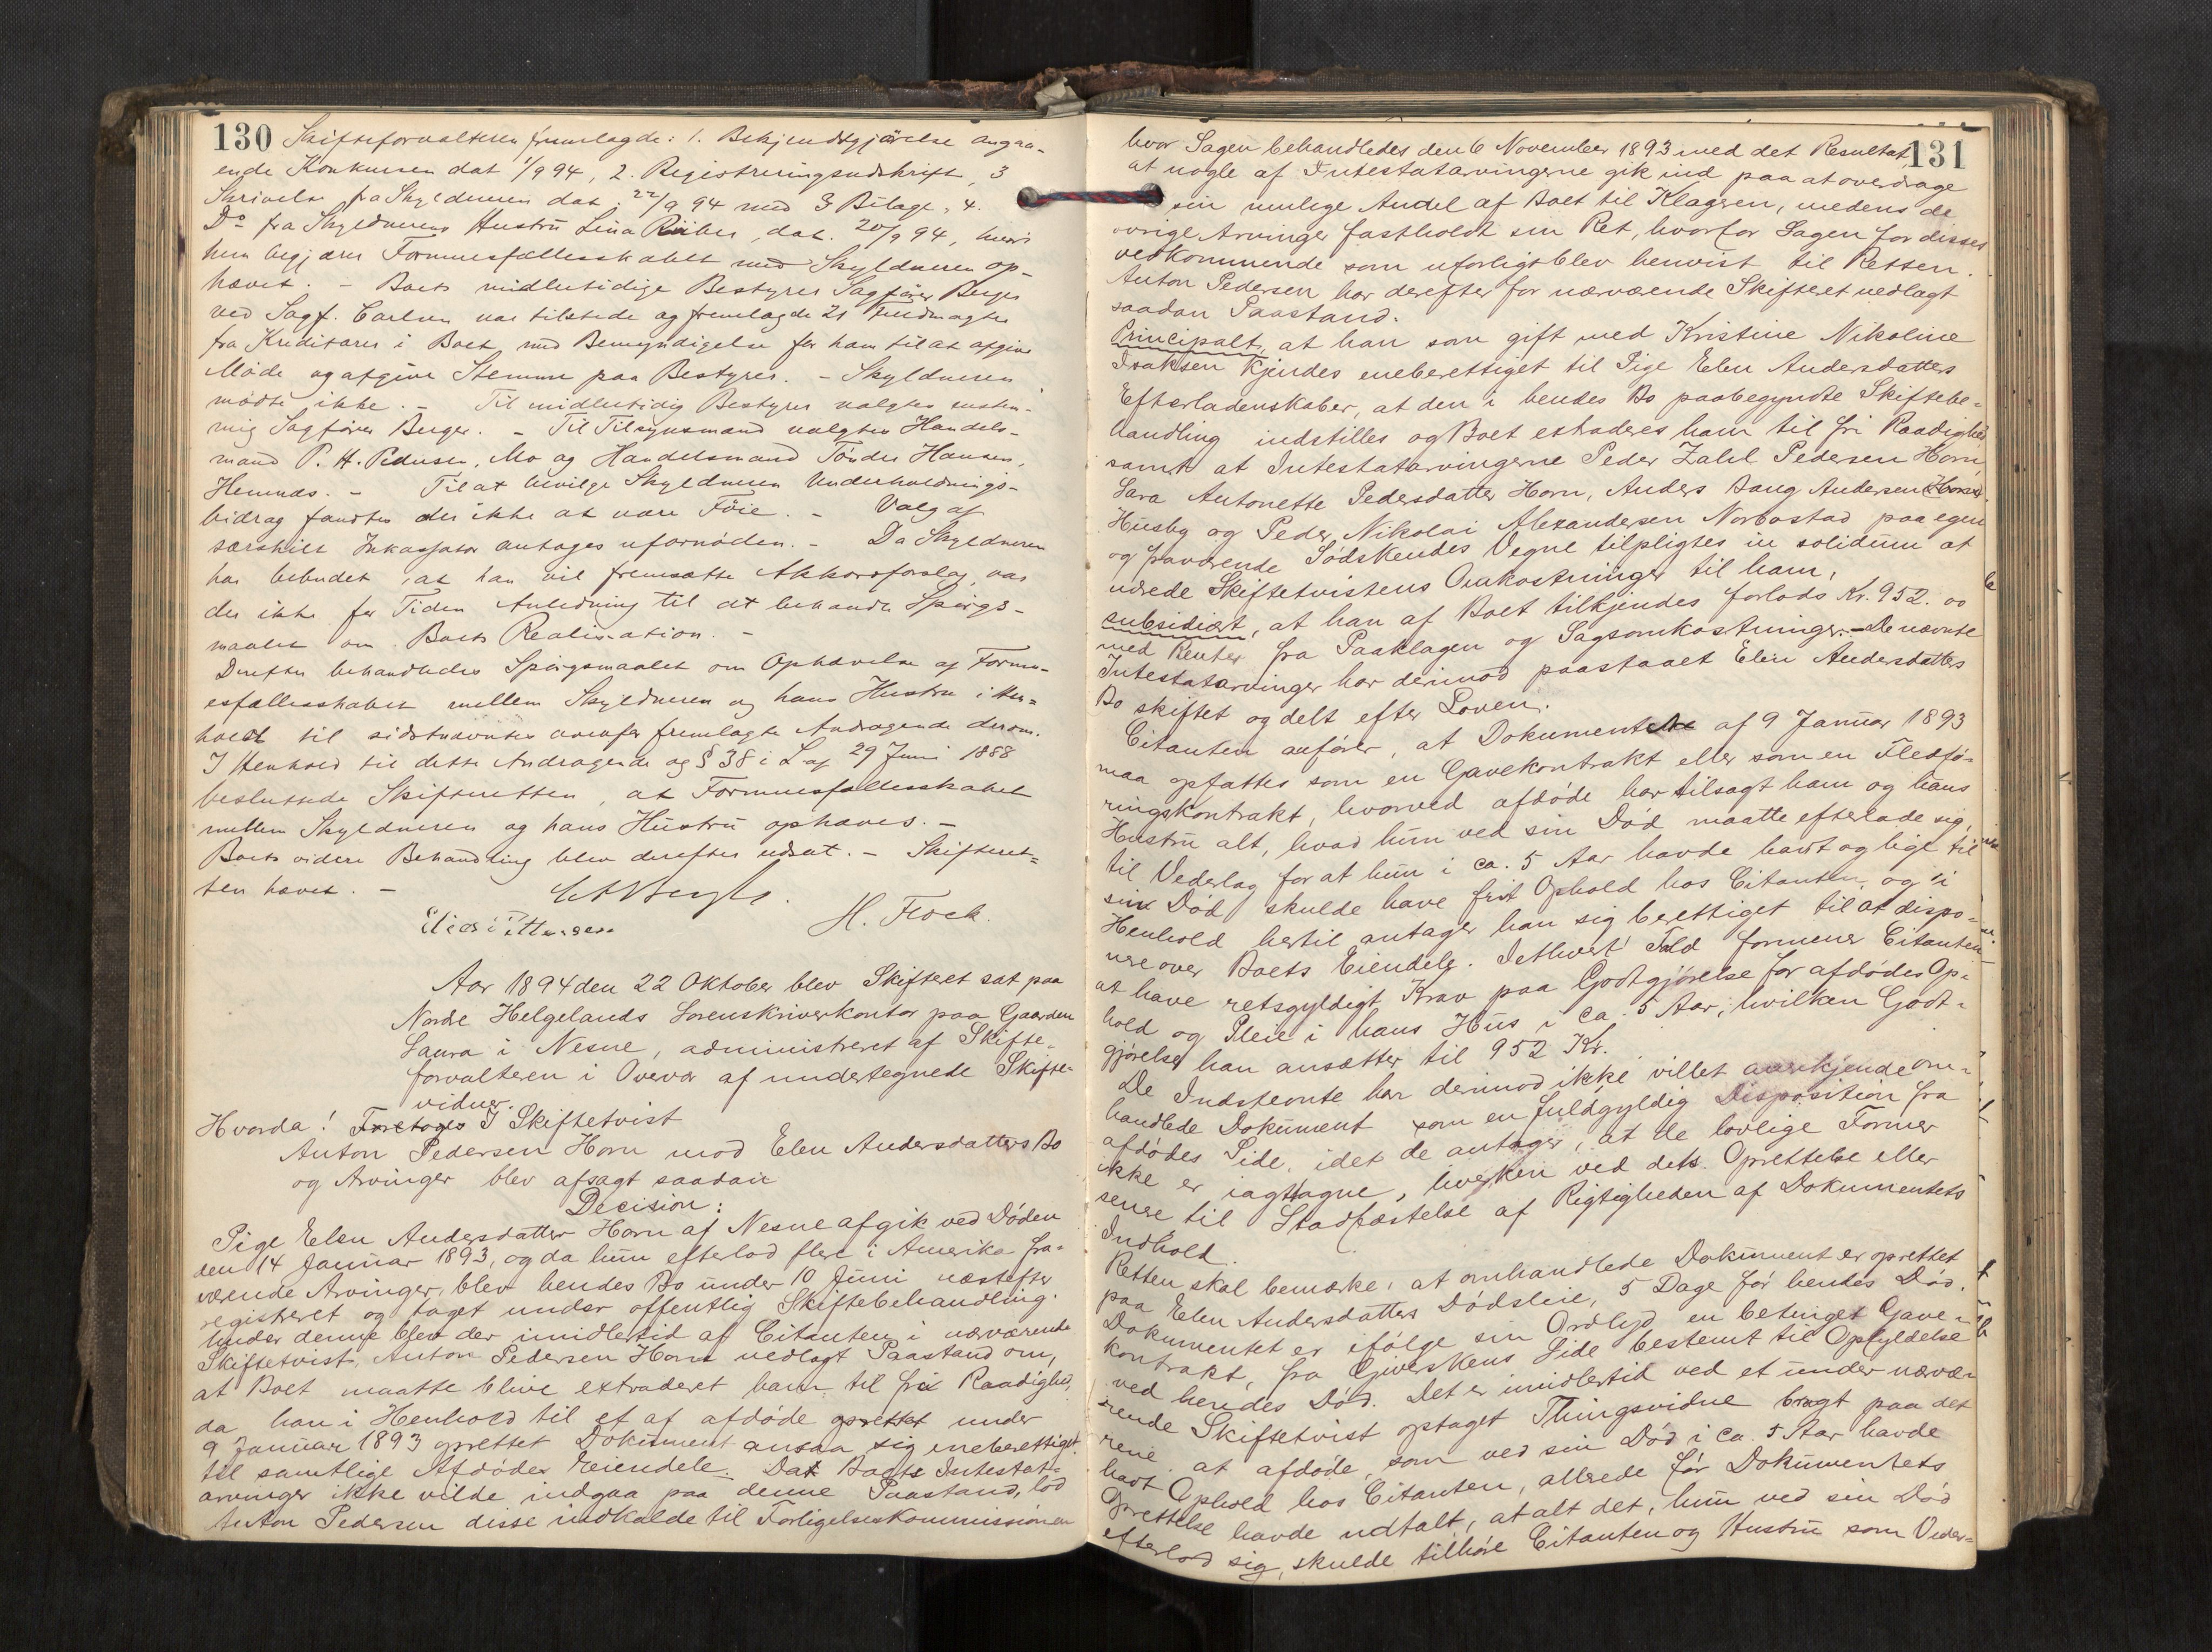 130 Skifteforvalteren fremlagde: 1. Bekjendtgjørelse angaa-
ende Konkursen dat 1/9 94, 2. Registreringsudskrift, 3
Skrivelse fra Skyldneren dat. 22/9 94 med 3 Bilage, 4.
Do fra Skyldnerens Hustru Lina Riiber, dat. 20/9 94, hvori
hun begjærer Formuesfællesskabet med Skyldneren op-
hævet. - Boets midlertidige Bestyrer Sagfører Berger
ved Sagf. Carlsen var tilstede og fremlagde 21 Fuldmagter
fra Kreditorer i Boet med Bemyndigelse for ham til at afgive
Møde og afgive Stemme paa Bestyrer. - Skyldneren
mødte ikke. - Til midlertidig Bestyrer valgtes enstem-
mig Sagfører Berger. - Til Tilsynsmænd valgtes Handels-
mand P. H. Pedersen, Mo og Handelsmand Tønder Hansen,
Hemnes. - Til at bevilge Skyldneren Underholdnings-
bidrag fandtes der ikke at være Føie. - Valg af
særskilt Inkassator antoges ufornøden. - Da Skyldneren
har bebudet, at han vil fremsætte Akkordforslag, var
der ikke for Tiden Anledning til at behandle Spørgs-
maalet om Boets Realisation. -
Derefter behandledes Spørgsmaalet om Ophævelse af Formu-
esfællesskabet mellem Skyldneren og hans Hustru i Hen-
hold til sidstnævntes ovenfor fremlagte Andragende derom.
I Henhold til dette Andragende og § 38 i L. af 29 Juni 1888
besluttede Skifteretten, at Formuesfællesskabet
mellem Skyldneren og hans Hustru ophæves. -
Boets videre Behandling blev derefter udsat. - Skifteret=
ten hævet. -
H. Flock.
Aar 1894 den 22 Oktober blev Skifteret sat paa
Nordre Helgelands Sorenskriverkontor paa Gaarden
Laura i Nesne, administreret af Skifte-
forvalteren i Overvær af undertegnede Skifte-
vidner.
Hvorda! Foretoges I Skiftetvist
Anton Pedersen Horn mod Elen Andersdatters Bo
og Arvinger blev afsagt saadan
Decision:
Pige Elen Andersdatter Horn af Nesne afgik ved Døden
den 14 Januar 1893, og da hun efterlod flere i Amerika fra-
værende Arvinger, blev hendes Bo under 10 Juni næstefter
registreret og taget under offentlig Skiftebehandling.
Under denne blev der imidlertid af Citanten i nærværende
Skiftetvist, Anton Pedersen Horn nedlagt Paastand om,
at Boet maatte blive extraderet ham til fri Raadighed,
da han i Henhold til et af afdøde oprettet under
9 Januar 1893 oprettet Dokument ansaa sig eneberettiget
til samtlige Afdødes Eiendele. Da Boets Intestat-
arvinger ikke vilde indgaa paa denne Paastand, lod
Anton Pedersen disse indkalde til Forligelseskommissionen
131
hvor Sagen behandledes den 6 November 1893 med det Resultat,
at nogle af Intestatarvingerne gik ind paa at overdrage
sin mulige Andel af Boet til Klageren, medens de
øvrige Arvinger fastholdt sin Ret, hvorfor Sagen for disses
vedkommende som uforligt blev henvist til Retten.
Anton Pedersen har derefter for nærværende Skifteret nedlagt
saadan Paastand.
Principalt, at han som gift med Kristine Nikoline
Isaksen kjendes eneberettiget til Pige Elen Andersdatters
Efterladenskaber, at den i hendes Bo paabegyndte Skiftebe-
handling indstilles og Boet extraderes ham til fri Raadighed
samt at Intestatarvingerne Peder Zahl Pedersen Horn,
Sara Antonette Pedersdatter Horn, Anders Bang Andersen Horn
Husby og Peder Nikolai Alexandersen Norbostad paa egen
og fraværende Sødskendes Vegne tilpligtes in solidum at
udrede Skiftetvistens Omkostninger til ham,
subsidiært, at han af Boet tilkjendes forlods Kr. 952.00
med Renter fra Paaklagen og Sagsomkostninger. - De nævnte
Intestatarvinger har derimod paastaaet Elen Andersdatters
Bo skiftet og delt efter Loven.
Citanten anfører, at Dokumentet af 9 Januar 1893
maa opfattes som en Gavekontrakt eller som en Fledfø-
ringskontrakt, hvorved afdøde har tilsagt ham og hans
Hustru alt, hvad hun ved sin Død maatte efterlade sig,
til Vederlag for at hun i ca. 5 Aar havde havt og lige til
sin Død skulde have frit Ophold hos Citanten, og i
Henhold hertil antager han sig berettiget til at dispo-
nere over Boets Eiendele. I ethvert Fald formener Citanten
at have retsgyldigt Krav paa Godtgjørelse for afdødes Op-
hold og Pleie i hans Hus i ca. 5 Aar, hvilken Godt-
gjørelse han ansætter til 952 Kr.
De Indstevnte har derimod ikke villet anerkjende om-
handlede Dokument som en fuldgyldig Disposition fra
afdødes Side, idet de antager, at de lovlige Former
ikke er iagttagne, hverken ved dets Oprettelse eller
senere til Stadfæstelse af Rigtigheden af Dokumentets
Indhold.
Retten skal bemærke: at omhandlede Dokument er oprettet
paa Elen Andersdatters Dødsleie, 5 Dage før hendes Død.
Dokumentet er ifølge sin Ordlyd en betinget Gave-
kontrakt, fra Giverskens Side bestemt til Opfyldelse
ved hendes Død. Det er imidlertid ved et under nærvæ-
rende Skiftetvist optaget Thingsvidne bragt paa det
rene at afdøde, som ved sin Død i ca. 5 Aar havde
havt Ophold hos Citanten, allerede før Dokumentets
Oprettelse havde udtalt, at alt det, hun ved sin Død
efterlod sig, skulde tilhøre Citanten og Hustru som Veder-